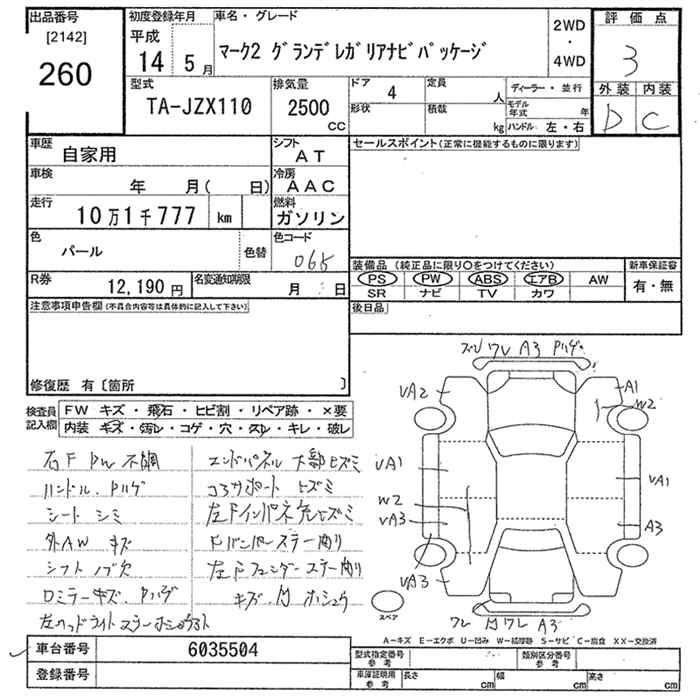 出品番号
[2142]
260
初度登録年月
平成
14 5月
車名・グレード
マーク2 グランデレガリアナビパッケージ
2WD
・
4WD
評価点
3
外装 内装
D C
型式
TA-JZX110
排気量
2500
CC
ドア
4
定員
人
形状
積載
kg
ディーラー・並行
モデル年式 年
ハンドル 左・右
車歴
自家用
シフト
AT
車検
年 月( 日)
冷房
AAC
走行
10万1千777 km
燃料
ガソリン
色
パール
色替
色コード
065
R券
12,190円
名変通知期限
月 日
セールスポイント(正常に機能するものに限ります)
装備品(純正品に限り○をつけてください)
PS PW ABS エアB AW
SR ナビ TV カワ
新車保証書
有・無
後日品
注意事項申告欄(不具合内容等は具体的に記入して下さい)
修復歴 有〔箇所 〕
検査員記入欄
FW キズ・飛石・ヒビ割・リペア跡・×要
内装 キズ・汚れ・コゲ・穴・スレ・キレ・破レ
右F PW 不調
ハンドル、ハゲ
シート シミ
外AW キズ
シフトノブ欠
ロミラーキズ、ハゲ
エンドパネル 下部ヒズミ
コアサポート ヒズミ
Fバンパーステー曲り
左Fフェンダーステー曲り
ワレ A3
VA2
A1
W2
VA1
W2
VA3
VA3
VA1
A3
スペア
ワレ A3
A-キズ E-エクボ U-凹み W-補修跡 S-サビ C-腐食 XX-交換済
車台番号
6035504
登録番号
型式指定番号
参考
類別区分番号
参考
車庫証明用
参考
長さ cm
幅 cm
高さ cm